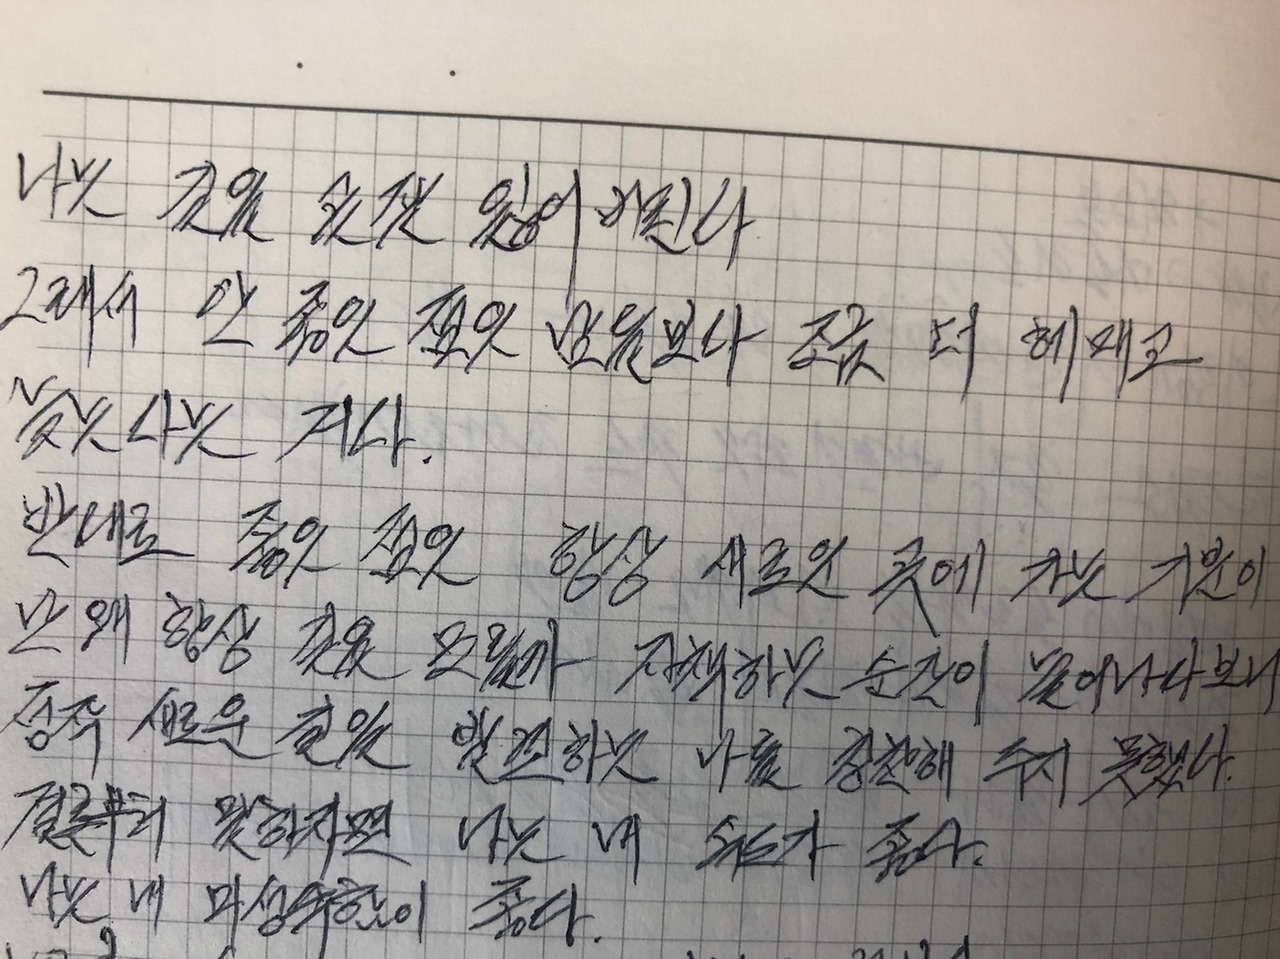 나는 길을 굉장히 잃어버린다
그래서 안 좋은 점은 남들보다 조금 더 헤매고
늦는다는 거다.
반대로 좋은 점은 항상 새로운 곳에 가는 기분이
난 왜 항상 길을 모를까 자책하는 순간이 늘어나다보니
정작 새로운 길을 발견하는 나를 칭찬해 주지 못했다.
결론부터 말하자면 나는 내 속도가 좋다.
나는 내 미성숙함이 좋다.